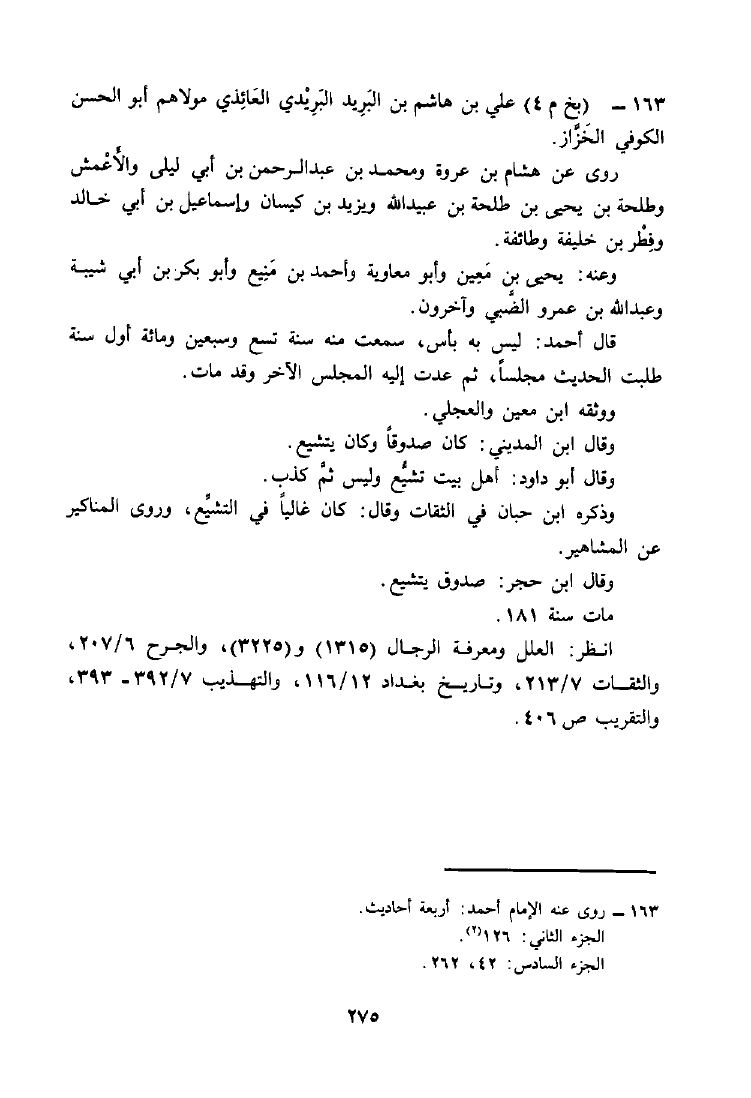 ١٦٣ – (بخ م ٤) علي بن هاشم بن البَرِيد البَرِيْدي العَائِذي مولاهم أبو الحسن
الكوفي الخَزَّاز.
روى عن هشام بن عروة ومحمد بن عبدالرحمن بن أبي ليلى والأَعْمش
وطلحة بن يحيى بن طلحة بن عبيدالله ويزيد بن كيسان وإسماعيل بن أبي خالد
وفِطْر بن خليفة وطائفة.
وعنه: يحيى بن مَعِين وأبو معاوية وأحمد بن مَنِيع وأبو بكر بن أبي شيبة
وعبدالله بن عمرو الضَّبي وآخرون.
قال أحمد: ليس به بأس، سمعت منه سنة تسع وسبعين ومائة أول سنة
طلبت الحديث مجلساً، ثم عدت إليه المجلس الآخر وقد مات.
ووثقه ابن معين والعجلي.
وقال ابن المديني: كان صدوقاً وكان يتشيع.
وقال أبو داود: أهل بيت تشيُّع وليس ثمَّ كذب.
وذكره ابن حبان في الثقات وقال: كان غالياً في التشيُّع، وروى المناكير
عن المشاهير.
وقال ابن حجر: صدوق يتشيع.
مات سنة ١٨١.
انظر: العلل ومعرفة الرجال (١٣١٥) و(٣٢٢٥)، والجرح ٢٠٧/٦،
والثقات ٢١٣/٧، وتاريخ بغداد ١١٦/١٢، والتهذيب ٣٩٢/٧ - ٣٩٣،
والتقريب ص ٤٠٦.
١٦٣ – روى عنه الإمام أحمد: أربعة أحاديث.
الجزء الثاني: ١٢٦(٢).
الجزء السادس: ٤٢، ٢٦٢.
٢٧٥